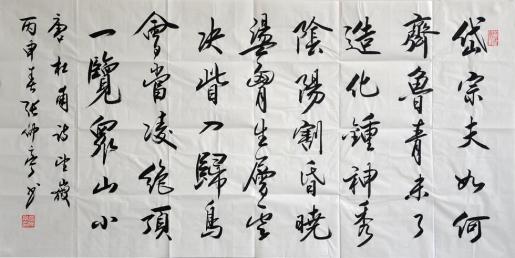 岱宗夫如何
齊魯青未了
造化鍾神秀
陰陽割昏曉
盪胷生層雲
決眥入歸鳥
會當凌絶頂
一覽眾山小
唐杜甫詩望嶽
丙申春張仰亭書